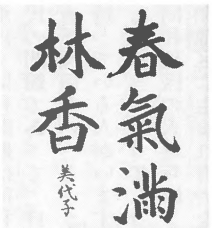 春氣滿
林香
美代子